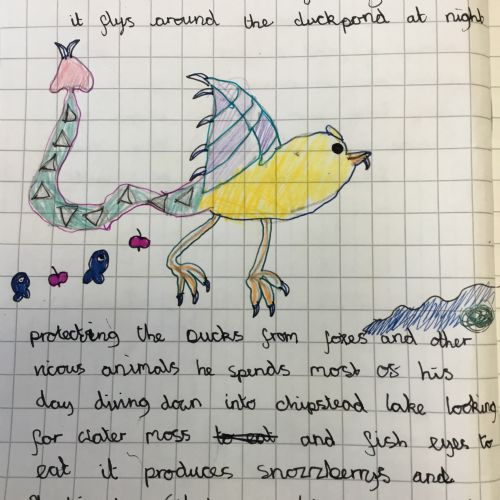 it flys around the duckpond at night
protectring the Ducks from foxes and other
vicous animals he spends most of his
day diving down into chipstead lake looking
for water moss to eat and fish eyes to
eat it produces snozzberrys and